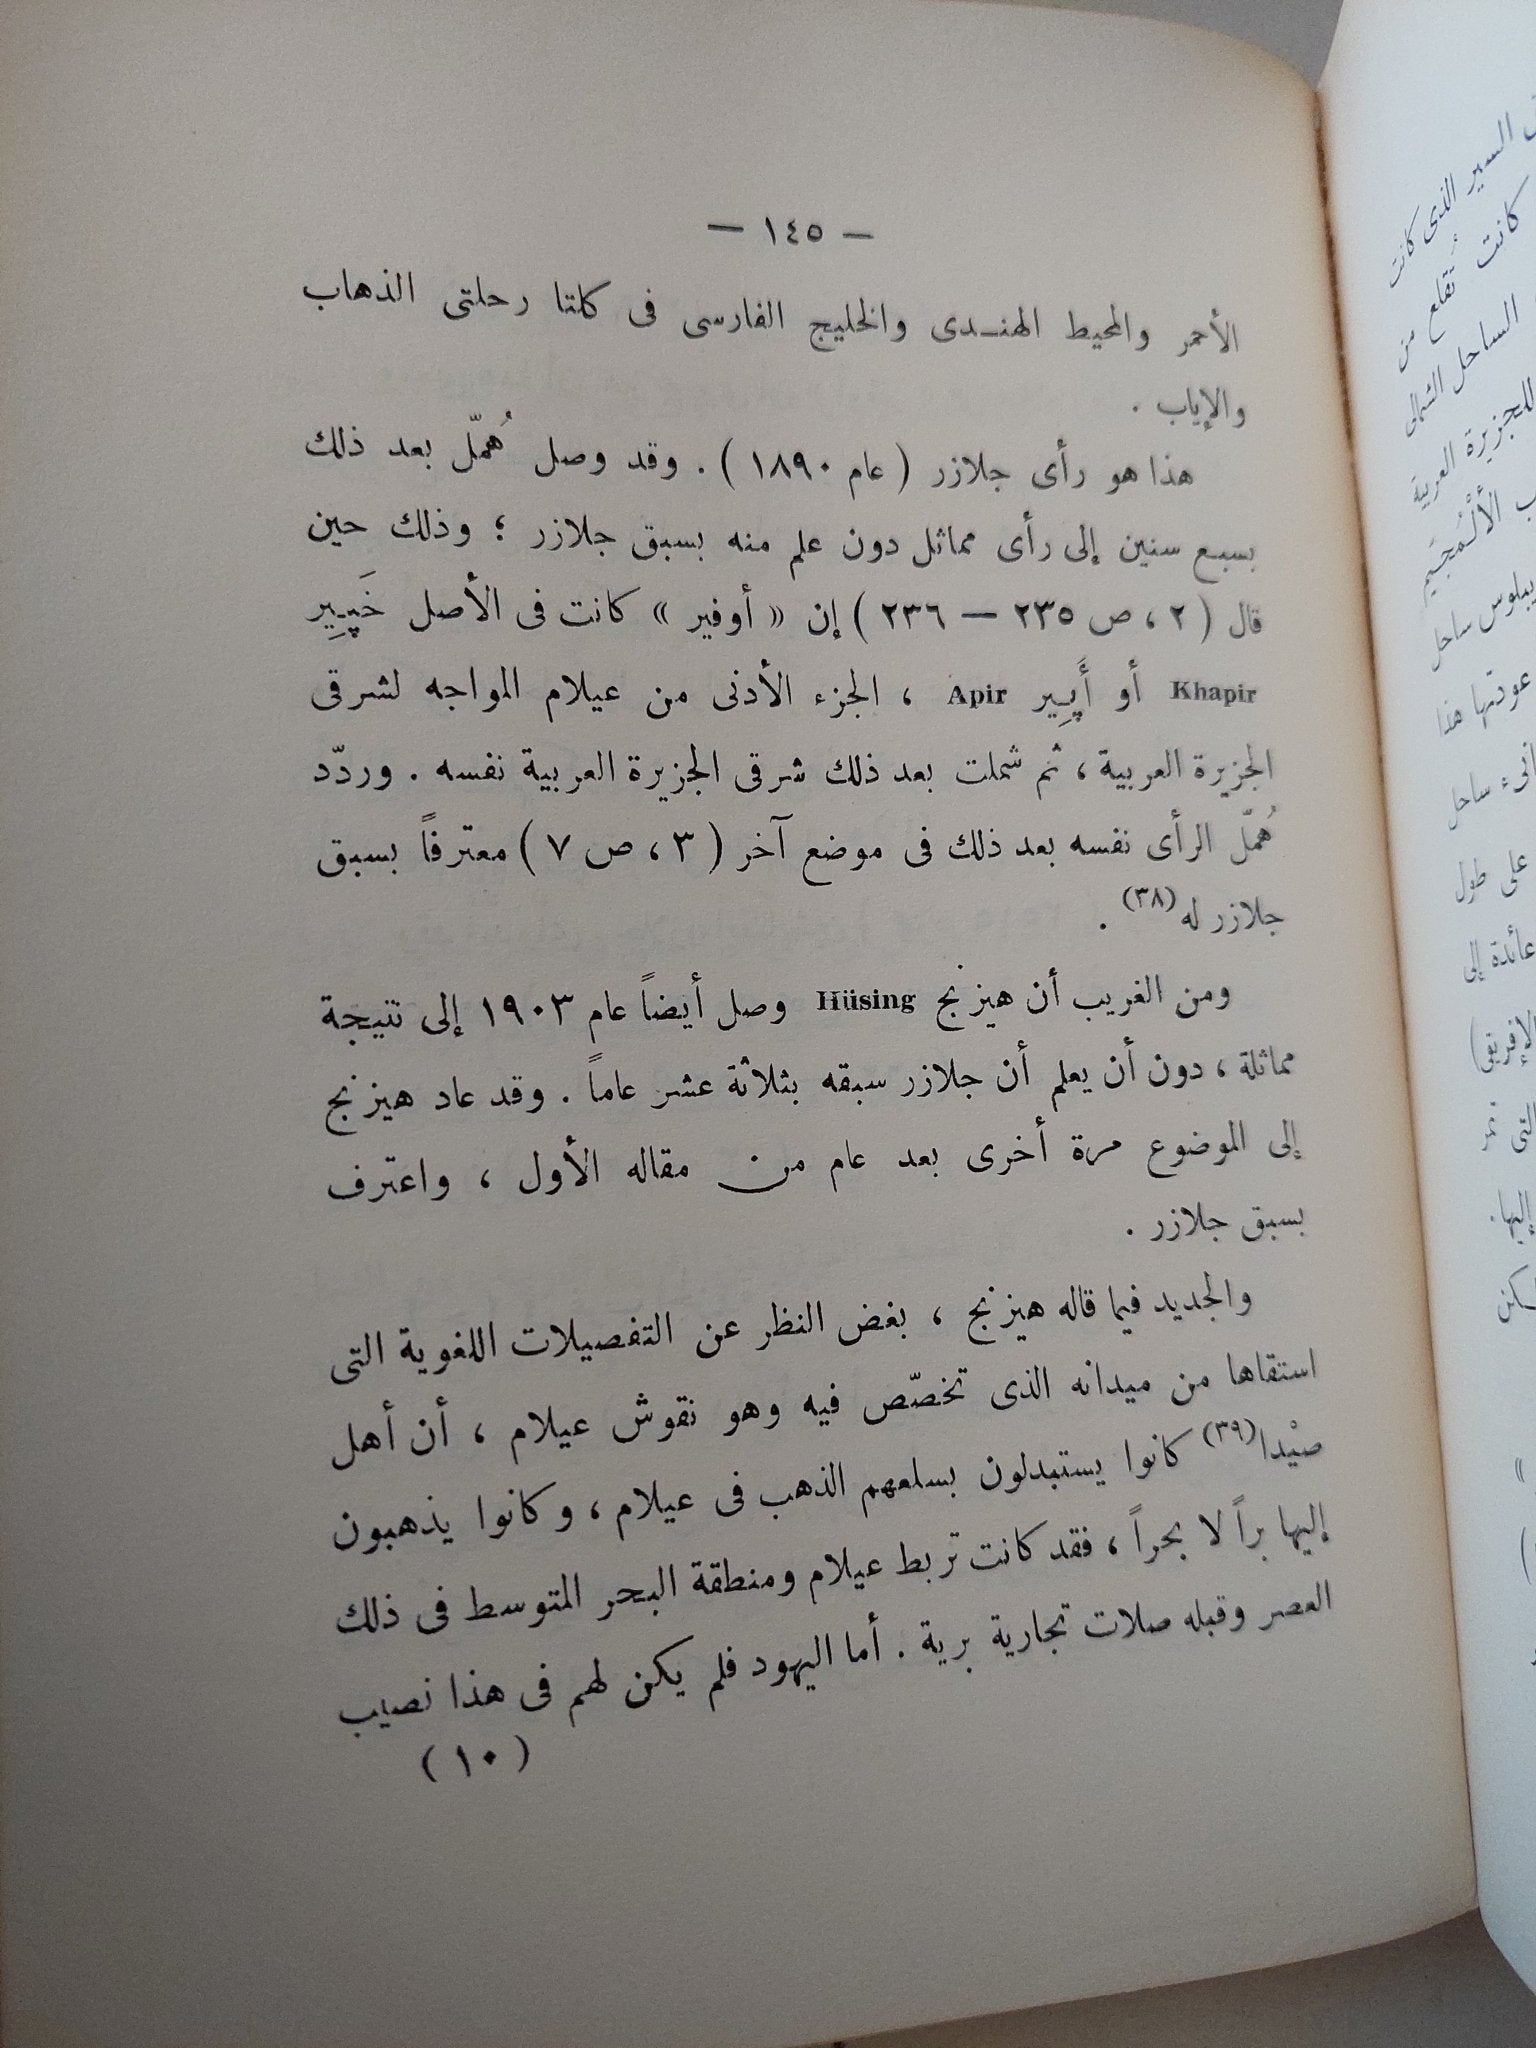 — ١٤٥ —
الأحمر والمحيط الهندى والخليج الفارسى فى كلتا رحلتى الذهاب
والإياب .
هذا هو رأى جلازر ( عام ١٨٩٠ ) . وقد وصل هُمّل بعد ذلك
بسبع سنين إلى رأى مماثل دون علم منه بسبق جلازر ؛ وذلك حين
قال ( ٢ ، ص ٢٣٥ — ٢٣٦ ) إن « أوفير » كانت فى الأصل خَپِير
Khapir أو أَپِير Apir ، الجزء الأدنى من عيلام المواجه لشرقى
الجزيرة العربية ، ثم شملت بعد ذلك شرقى الجزيرة العربية نفسه . وردّد
هُمّل الرأى نفسه بعد ذلك فى موضع آخر ( ٣ ، ص ٧ ) معترفاً بسبق
جلازر له(٣٨) .
ومن الغريب أن هيزنج Hüsing وصل أيضاً عام ١٩٠٣ إلى نتيجة
مماثلة ، دون أن يعلم أن جلازر سبقه بثلاثة عشر عاماً . وقد عاد هيزنج
إلى الموضوع مرة أخرى بعد عام من مقاله الأول ، واعترف
بسبق جلازر .
والجديد فيما قاله هيزنج ، بغض النظر عن التفصيلات اللغوية التى
استقاها من ميدانه الذى تخصّص فيه وهو نقوش عيلام ، أن أهل
صيْدا(٣٩) كانوا يستبدلون بسلعهم الذهب فى عيلام ، وكانوا يذهبون
إليها براً لا بحراً ، فقد كانت تربط عيلام ومنطقة البحر المتوسط فى ذلك
العصر وقبله صلات تجارية برية . أما اليهود فلم يكن لهم فى هذا نصيب
( ١٠ )
السير الذى كانت
كانت تُقلع من
الساحل الشمالى
للجزيرة العربية
ساحل
عودتها هذا
ساحل
على طول
عائدة إلى
الإفريقى )
التى تمر
إليها .